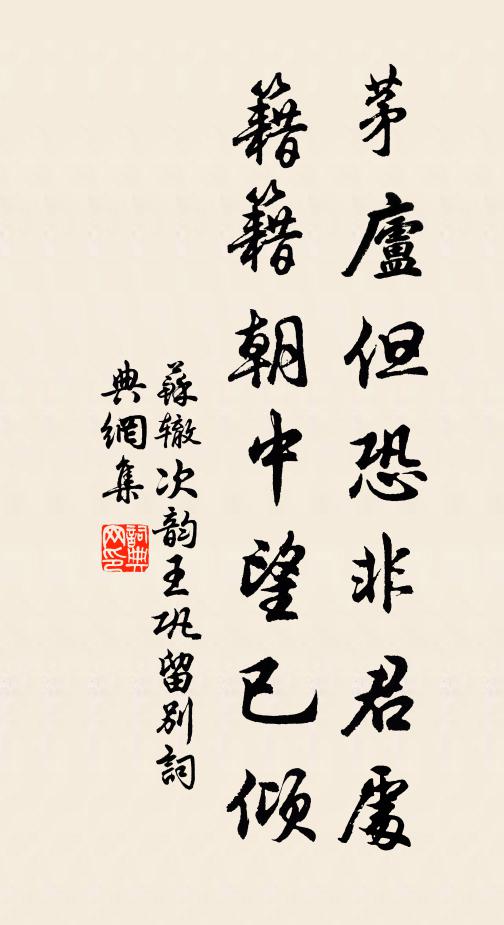 茅廬但恐非君處
籍籍朝中望已傾
蘇轍次韵王巩留别詞
典網集
詞典網印